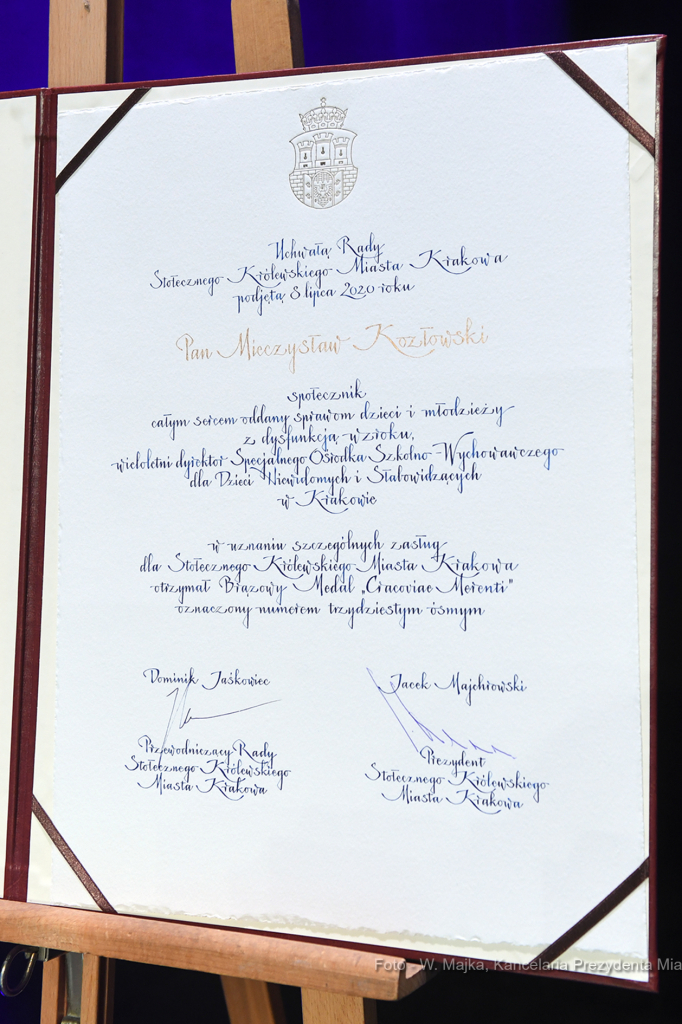 Uchwałą Rady
Stołecznego Królewskiego Miasta Krakowa
podjętą 8 lipca 2020 roku
Pan Mieczysław Kozłowski
społecznik
całym sercem oddany sprawom dzieci i młodzieży
z dysfunkcją wzroku,
wieloletni dyrektor Specjalnego Ośrodka Szkolno-Wychowawczego
dla Dzieci Niewidomych i Słabowidzących
w Krakowie
w uznaniu szczególnych zasług
dla Stołecznego Królewskiego Miasta Krakowa
otrzymał Brązowy Medal „Cracoviae Merenti"
oznaczony numerem trzydziestym ósmym
Dominik Jaśkowiec
Przewodniczący Rady
Stołecznego Królewskiego
Miasta Krakowa
Jacek Majchrowski
Prezydent
Stołecznego Królewskiego
Miasta Krakowa
Foto: W. Majka, Kancelaria Prezydenta Mia